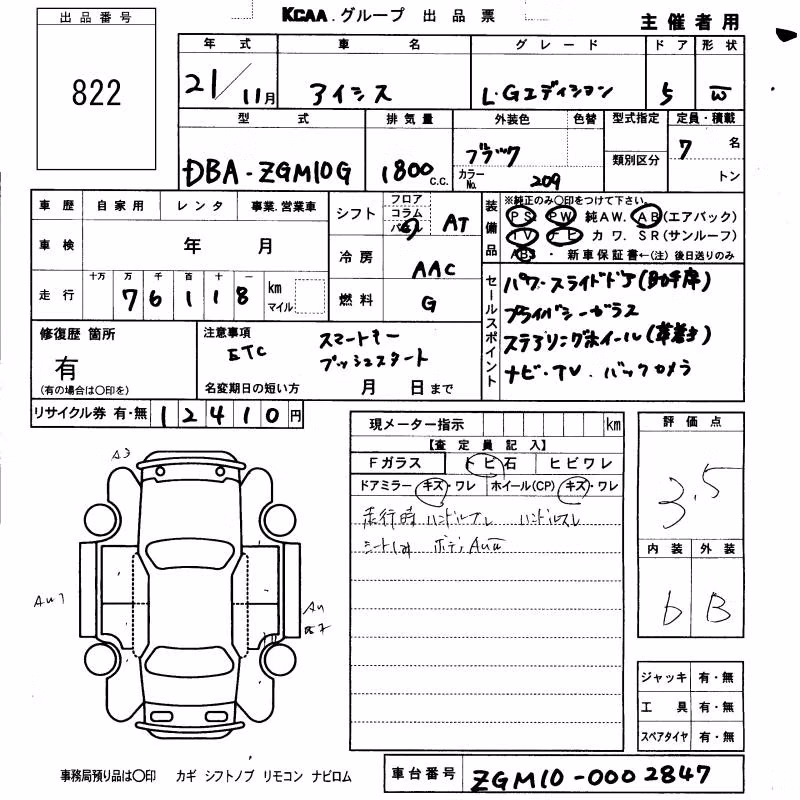 KCAA.グループ 出品票
主催者用
出品番号
822
年式 車名 グレード ドア 形状
21/11月 アイシス L・Gエディション 5 W
型式 排気量 外装色 色替 型式指定 定員・積載
DBA-ZGM10G 1800C.C. ブラック 類別区分 7名
カラーNo. 209 トン
車歴 自家用 レンタ 事業.営業車
車検 年 月
走行 十万 万 千 百 十 一 km マイル
76118
シフト フロア コラム AT
冷房 AAC
燃料 G
装備品 ※純正のみ○印をつけて下さい。
PS PW 純AW. AB(エアバック)
TV ナビ カワ. SR(サンルーフ)
ABS ・ 新車保証書←(注)後日送りのみ
セールスポイント
パワースライドドア(助手席)
プライバシーガラス
ステアリングホイール(革巻き)
ナビ・TV.バックカメラ
修復歴 箇所
有
(有の場合は○印を)
注意事項
ETC スマートキー
プッシュスタート
名変期日の短い方 月 日まで
リサイクル券 有・無 12410円
現メーター指示 km
【査定員記入】
Fガラス トビ石 ヒビワレ
ドアミラー キズ・ワレ ホイール(CP) キズ・ワレ
走行時 ハンドルブレ ハンドルズレ
評価点
3.5
内装 外装
6 B
A3
AU1
AU
ジャッキ 有・無
工具 有・無
スペアタイヤ 有・無
事務局預り品は○印 カギ シフトノブ リモコン ナビロム
車台番号 ZGM10-0002847